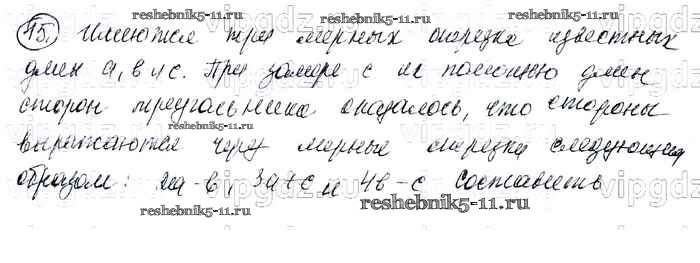 15. Имеются три мерных отрезка известных
длин a, b и c. При замере с их помощью длин
сторон треугольника оказалось, что стороны
выражаются через мерные отрезки следующим
образом: 2a-b, 3a+c и 4b-c составить
reshebnik5-11.ru
reshebnik5-11.ru
reshebnik5-11.ru
reshebnik5-11.ru
reshebnik5-11.ru
reshebnik5-11.ru
vipgdz